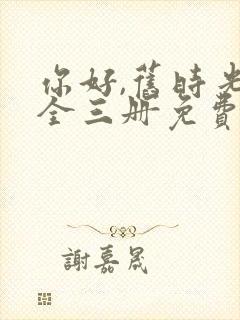 你好,舊時光
全三册免費
謝嘉晟